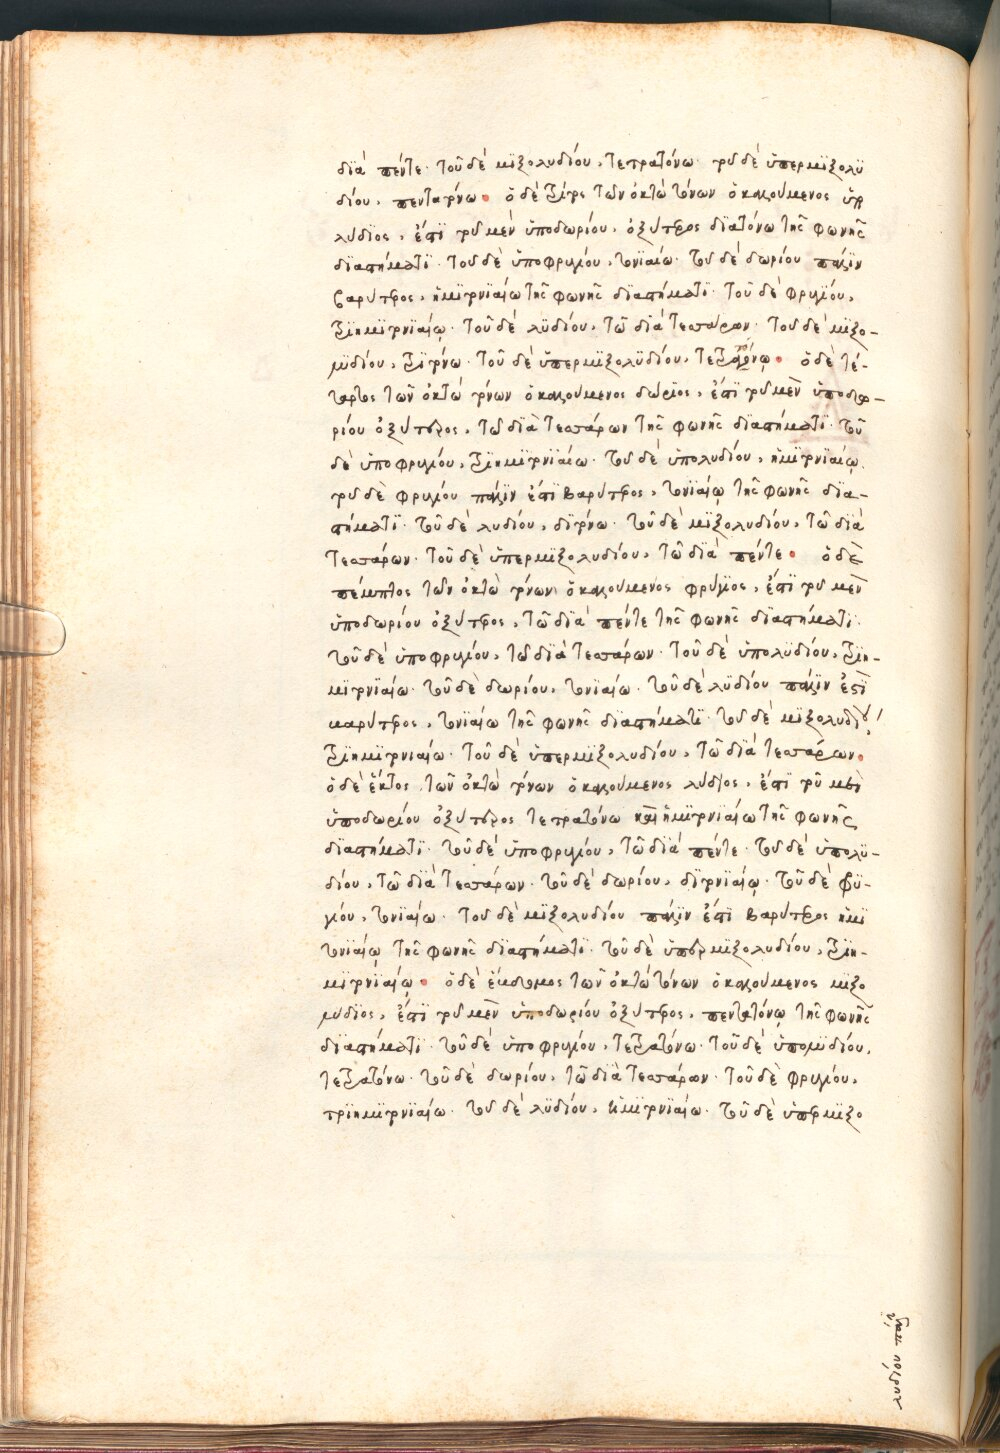 διὰ πέντε· τοῦ δὲ μιξολυδίου, τετρατόνω· του δὲ ὑπερμιξολυ
δίου, πεντατόνω. ὁ δὲ τρίτος τῶν ὀκτὼ τόνων ὁ καλούμενος ὑπο
λύδιος, ἐπὶ του μὲν ὑποδωρίου, ὀξύτερος διατόνω τῆς φωνῆς
διαστήματι· του δὲ ὑποφρυγίου, τονιαίω· του δὲ δωρίου πάλιν
βαρύτερος, ἡμιτονιαίω τῆς φωνῆς διαστήματι· τοῦ δὲ φρυγίου,
τριημιτονιαίω· τοῦ δὲ λυδίου, τῶ διὰ τεσσάρων· του δὲ μιξο-
λυδίου, τριτόνω· τοῦ δὲ ὑπερμιξολυδίου, τετρατόνω. ὁ δὲ τέ-
ταρτος τῶν ὀκτὼ τόνων ὁ καλούμενος δώριος, ἐπὶ του μὲν ὑποδω-
ρίου ὀξύτερος, τῶ διὰ τεσσάρων τῆς φωνῆς διαστήματι· τοῦ
δὲ ὑποφρυγίου, τριημιτονιαίω· του δὲ ὑπολυδίου, ἡμιτονιαίω.
του δὲ φρυγίου πάλιν ἐπὶ βαρύτερος, τονιαίω τῆς φωνῆς δια-
στήματι· τοῦ δὲ λυδίου, διτόνω· τοῦ δὲ μιξολυδίου, τῶ διὰ
τεσσάρων· τοῦ δὲ ὑπερμιξολυδίου, τῶ διὰ πέντε. ὁ δὲ
πέμπτος τῶν ὀκτὼ τόνων ὁ καλούμενος φρύγιος, ἐπὶ του μὲν
ὑποδωρίου ὀξύτερος, τῶ διὰ πέντε τῆς φωνῆς διαστήματι·
τοῦ δὲ ὑποφρυγίου, τῶ διὰ τεσσάρων· τοῦ δὲ ὑπολυδίου, τριη-
μιτονιαίω· τοῦ δὲ δωρίου, τονιαίω· τοῦ δὲ λυδίου πάλιν ἐπὶ
βαρύτερος, τονιαίω τῆς φωνῆς διαστήματι· του δὲ μιξολυδίου,
τριημιτονιαίω· τοῦ δὲ ὑπερμιξολυδίου, τῶ διὰ τεσσάρων.
ὁ δὲ ἕκτος τῶν ὀκτὼ τόνων ὁ καλούμενος λύδιος, ἐπὶ τοῦ μὲν
ὑποδωρίου ὀξύτερος τετρατόνω καὶ ἡμιτονιαίω τῆς φωνῆς
διαστήματι· τοῦ δὲ ὑποφρυγίου, τῶ διὰ πέντε· του δὲ ὑπολυ-
δίου, τῶ διὰ τεσσάρων· τοῦ δὲ δωρίου, διτονιαίω· τοῦ δὲ φρυ-
γίου, τονιαίω· του δὲ μιξολυδίου πάλιν ἐπὶ βαρύτερος ἡμι
τονιαίω τῆς φωνῆς διαστήματι· τοῦ δὲ ὑπερμιξολυδίου, τριη-
μιτονιαίω. ὁ δὲ ἕβδομος τῶν ὀκτὼ τόνων ὁ καλούμενος μιξο
λύδιος, ἐπὶ του μὲν ὑποδωρίου ὀξύτερος, πεντατόνω τῆς φωνῆς
διαστήματι· τοῦ δὲ ὑποφρυγίου, τετρατόνω· τοῦ δὲ ὑπολυδίου,
τετρατόνω· τοῦ δὲ δωρίου, τῶ διὰ τεσσάρων· τοῦ δὲ φρυγίου,
τριημιτονιαίω· του δὲ λυδίου, ἡμιτονιαίω· τοῦ δὲ ὑπερμιξο
λυδίου πάλιν